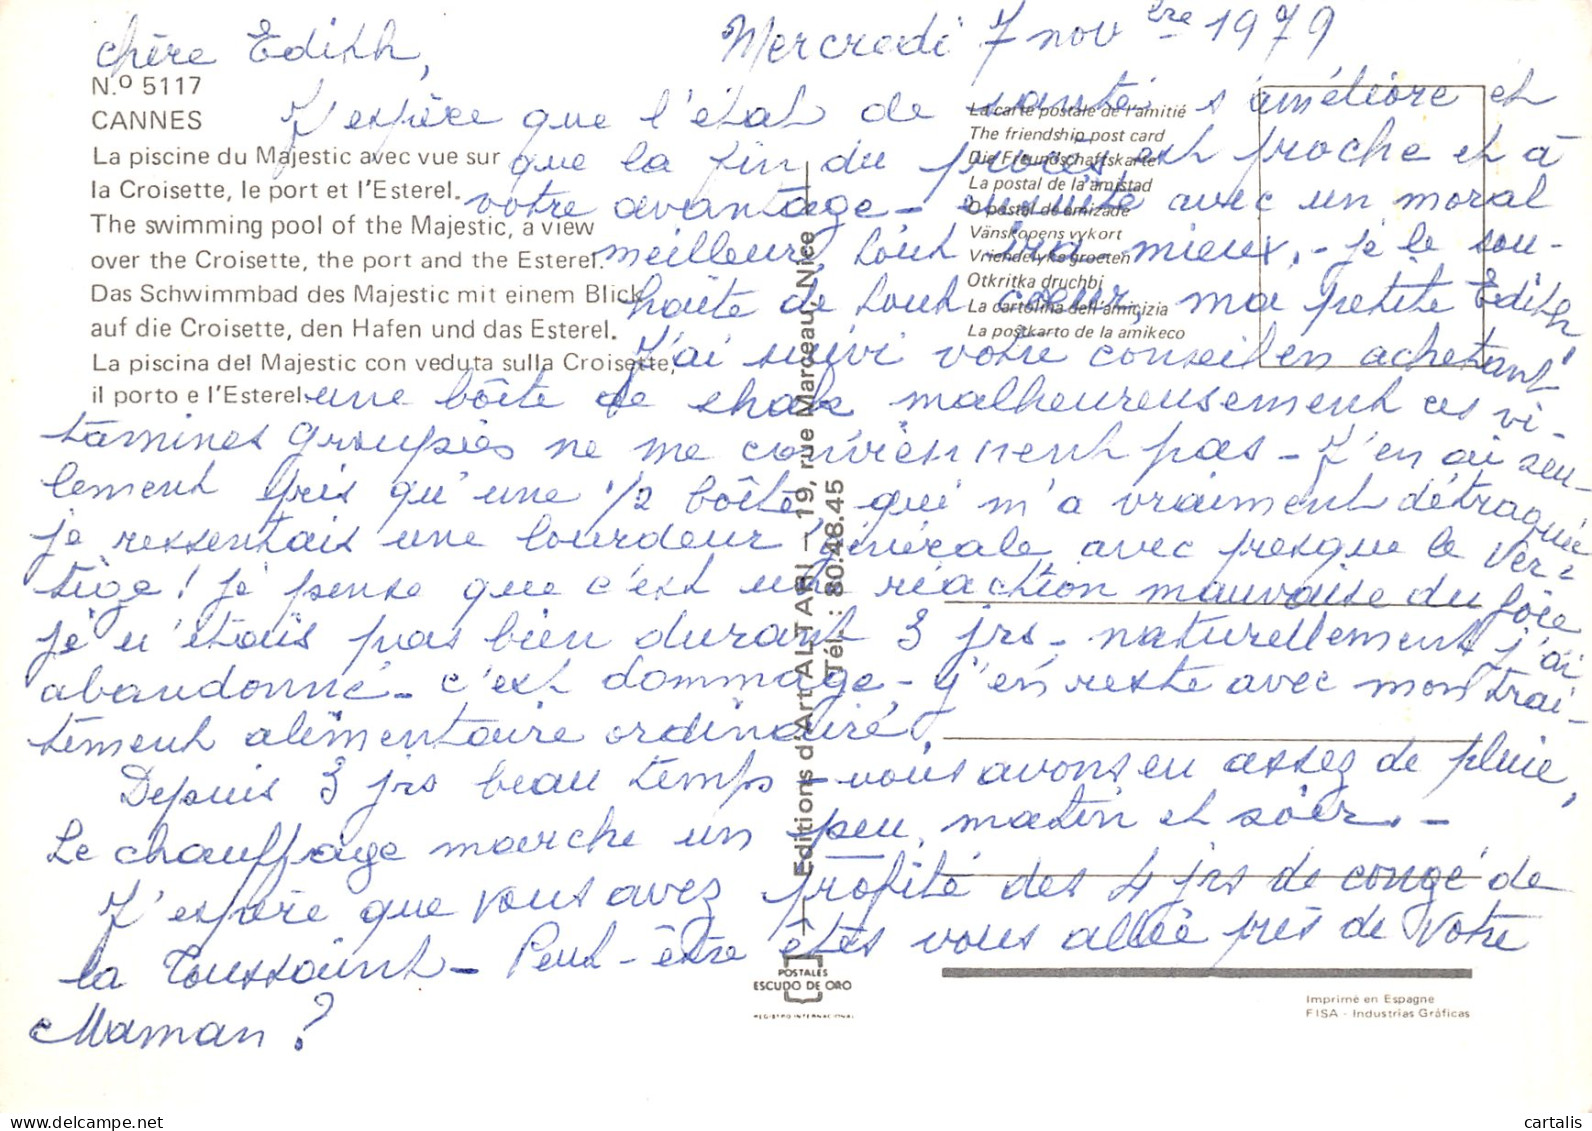 Mercredi 7 novbre 1979
chère Edith,
J'espère que l'état de santé s'améliore et
que la fin du procès est proche et à
votre avantage - ensuite avec un moral
meilleur, tout ira mieux. - je le sou-
haite de tout coeur, ma petite Edith!
J'ai suivi votre conseil en achetant
une boîte de malheureusement ces vi-
tamines groupées ne me conviennent pas - J'en ai seu-
lement pris qu'une 1/2 boîte, qui m'a vraiment détraquée
je ressentais une lourdeur générale avec presque le ver-
tige! je pense que c'est une réaction mauvaise du foie
je n'étais pas bien durant 3 jrs - naturellement j'ai
abandonné - c'est dommage - j'en reste avec mon trai-
tement alimentaire ordinaire.
Depuis 3 jrs beau temps - nous avons eu assez de pluie,
Le chauffage marche un peu, matin et soir. -
J'espère que vous avez profité des 4 jrs de congé de
la Toussaint - Peut-être êtes vous allée près de votre
Maman?
N.º 5117
CANNES
La piscine du Majestic avec vue sur
la Croisette, le port et l'Esterel.
The swimming pool of the Majestic, a view
over the Croisette, the port and the Esterel.
Das Schwimmbad des Majestic mit einem Blick
auf die Croisette, den Hafen und das Esterel.
La piscina del Majestic con veduta sulla Croisette,
il porto e l'Esterel.
La carte postale de l'amitié
The friendship post card
Die Freundschaftskarte
La postal de la amistad
O postal de amizade
Vänskopens vykort
Vriendelyke groeten
Otkritka druchbi
La cartolina dell'amicizia
La postkarto de la amikeco
Editions d'Art ALTARI - 19, rue Marceau, Nice
Tél. : 80.48.45
POSTALES
ESCUDO DE ORO
REGISTRO INTERNACIONAL
Imprimé en Espagne
FISA - Industrias Gráficas
cartalis